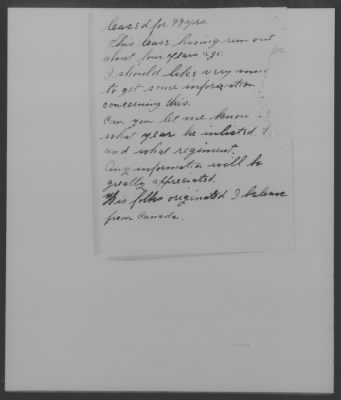 leased for 99 yrs.
This lease having run out
about four years ago.
I should like very much
to get some information
concerning this.
Can you let me know
what year he inlisted
and what regiment.
Any information will be
greatly appreciated.
His folks originated I beleave
from Canada.